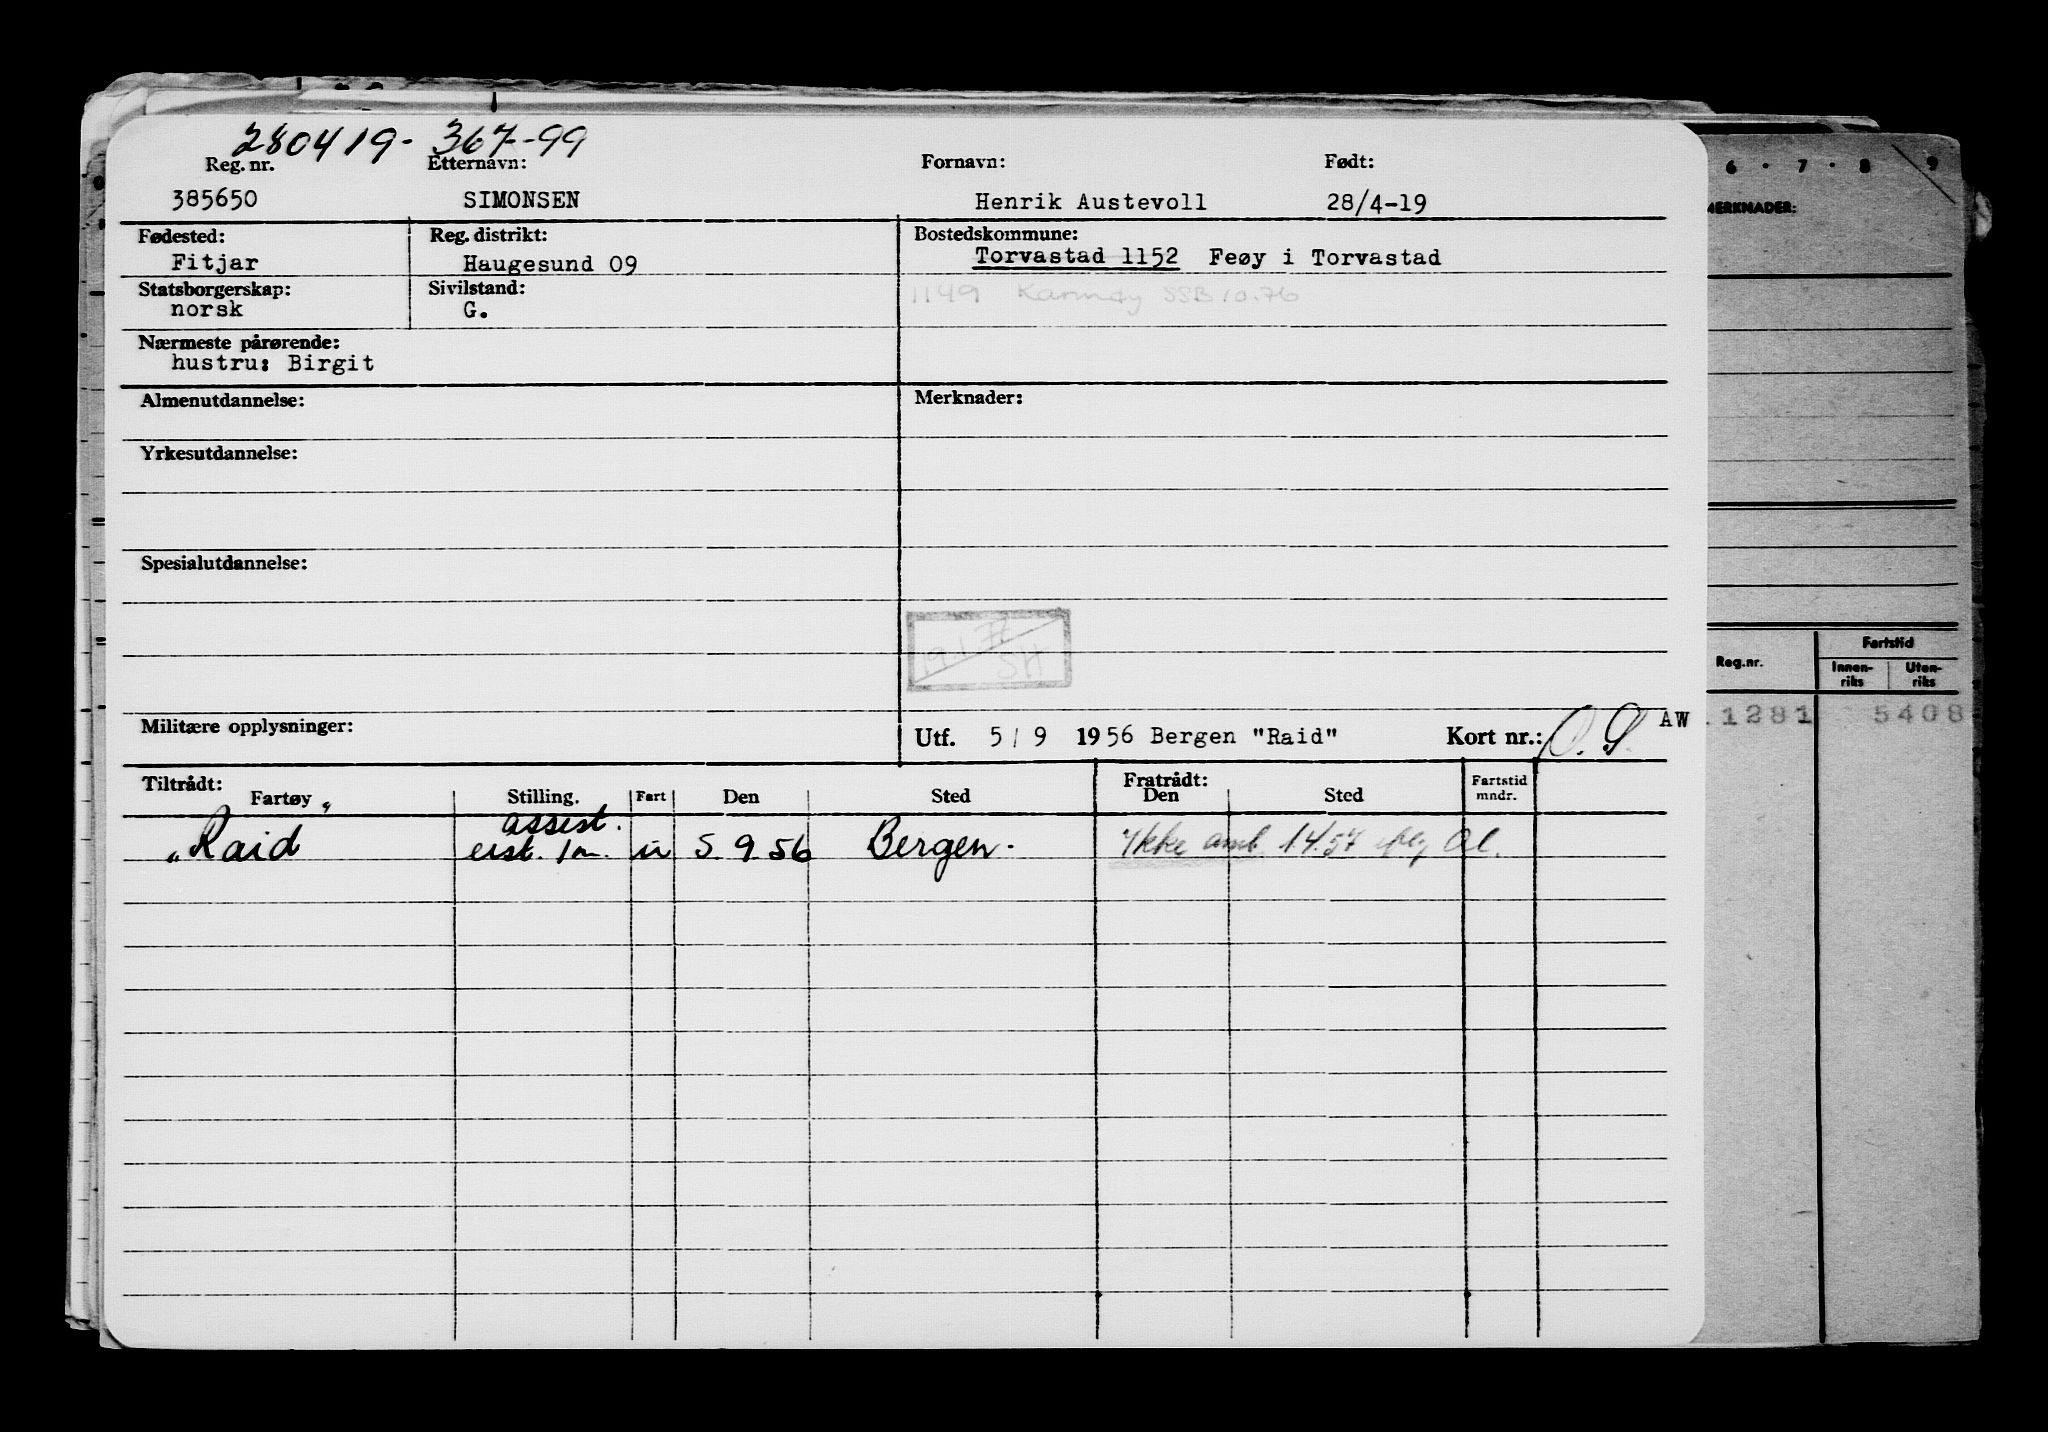 280419- 367-99
Reg. nr. Etternavn: Fornavn: Født:
385650 SIMONSEN Henrik Austevoll 28/4-19
Fødested: Reg. distrikt: Bostedskommune:
Fitjar Haugesund 09 Torvastad 1152 Feøy i Torvastad
Statsborgerskap: Sivilstand: 1149 Karmøy SSB 10.76
norsk G.
Nærmeste pårørende:
hustru: Birgit
Almenutdannelse: Merknader:
Yrkesutdannelse:
Spesialutdannelse:
19.1.77
SH
Militære opplysninger: Utf. 5/9 1956 Bergen "Raid" Kort nr.: AW
Tiltrådt: Fratrådt:
Fartøy Stilling. Fart Den Sted Den Sted Fartstid mndr.
"Raid assist. 5.9.56 Bergen. Ikke 14.57
6 . 7 . 8 9
MERKNADER:
Reg.nr. Fartstid
Innen-riks Uten-riks
1281 5408